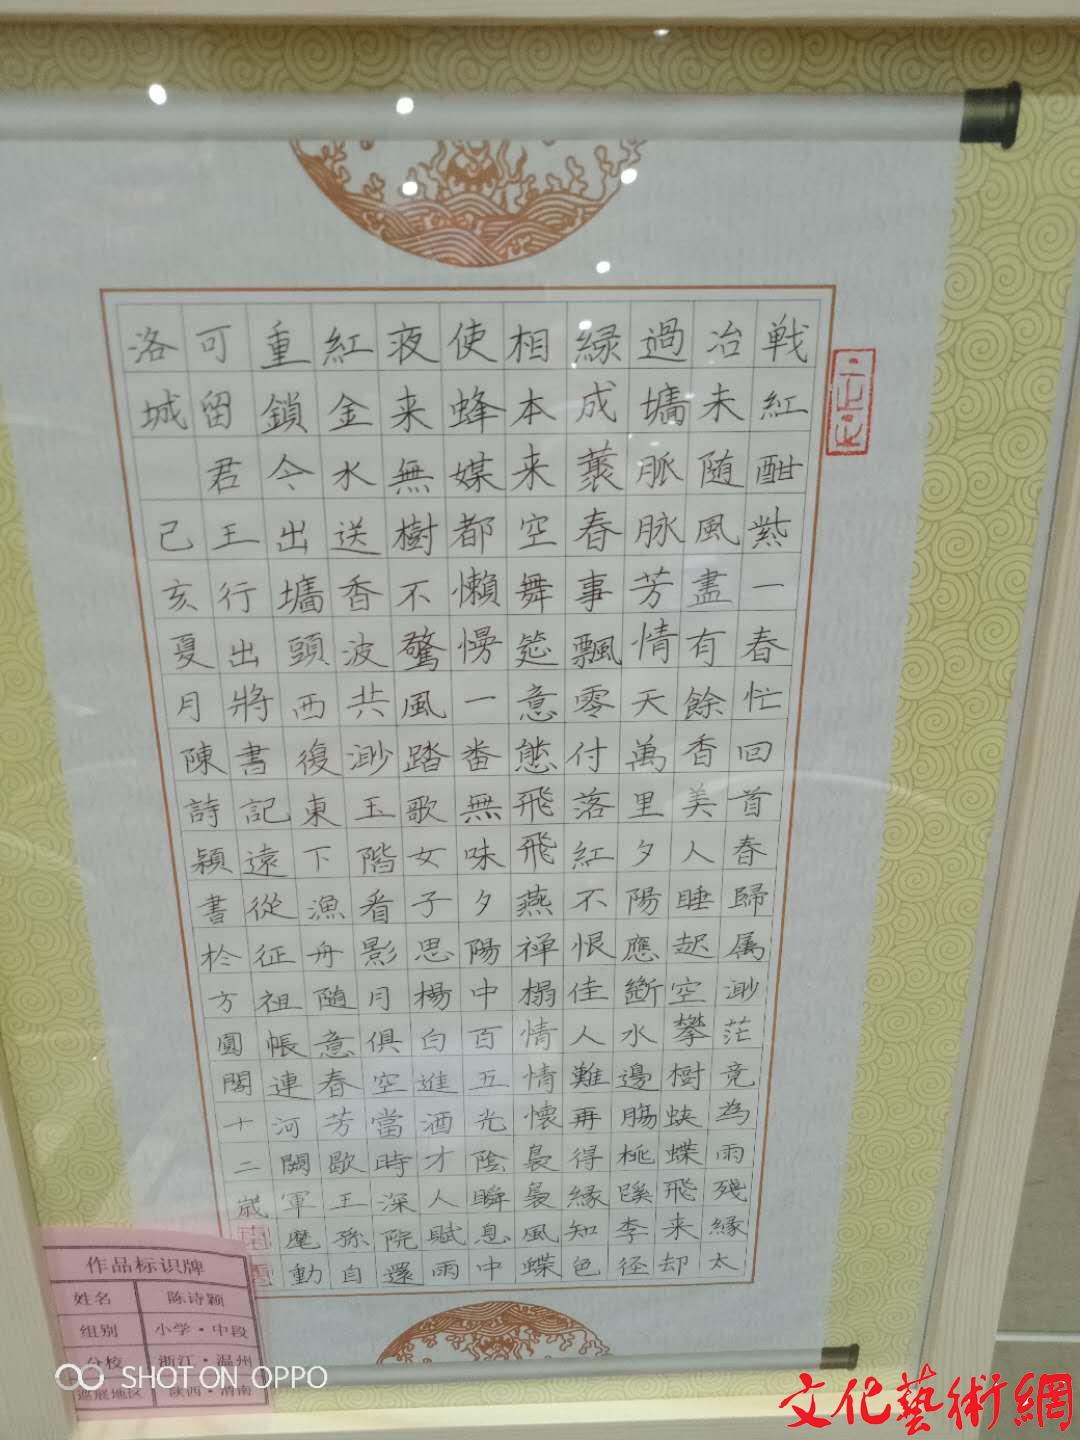 戦紅酣紫一春忙回首春歸属渺茫竞為雨殘緣太
冶未随風盡有餘香美人睡起空攀樹蛱蝶飛来却
過墻脈脉芳情天萬里夕陽應斷水邊腸桃蹊李径
緑成叢春事飄零付落紅不恨佳人難再得緣知色
相本来空舞筵意態飛飛燕禅榻情情懐裊裊風蝶
使蜂媒都懒慢一番無味夕陽中百五光陰瞬息中
夜来無樹不驚風踏歌女子思楊白進酒才人賦雨
紅金水送香波共渺玉階看影月俱空當時深院還
重鎖今出墻頭西復東下漁舟随意春芳歇王孫自
可留君王行出將書記遠從征祖帳連河闕軍麾動
洛城 己亥夏月陳詩穎書於方圓閣十二歲
作品标识牌
姓名 陈诗颖
组别 小学·中段
分校 浙江·温州
巡展地区 陕西·渭南
SHOT ON OPPO
文化藝術網